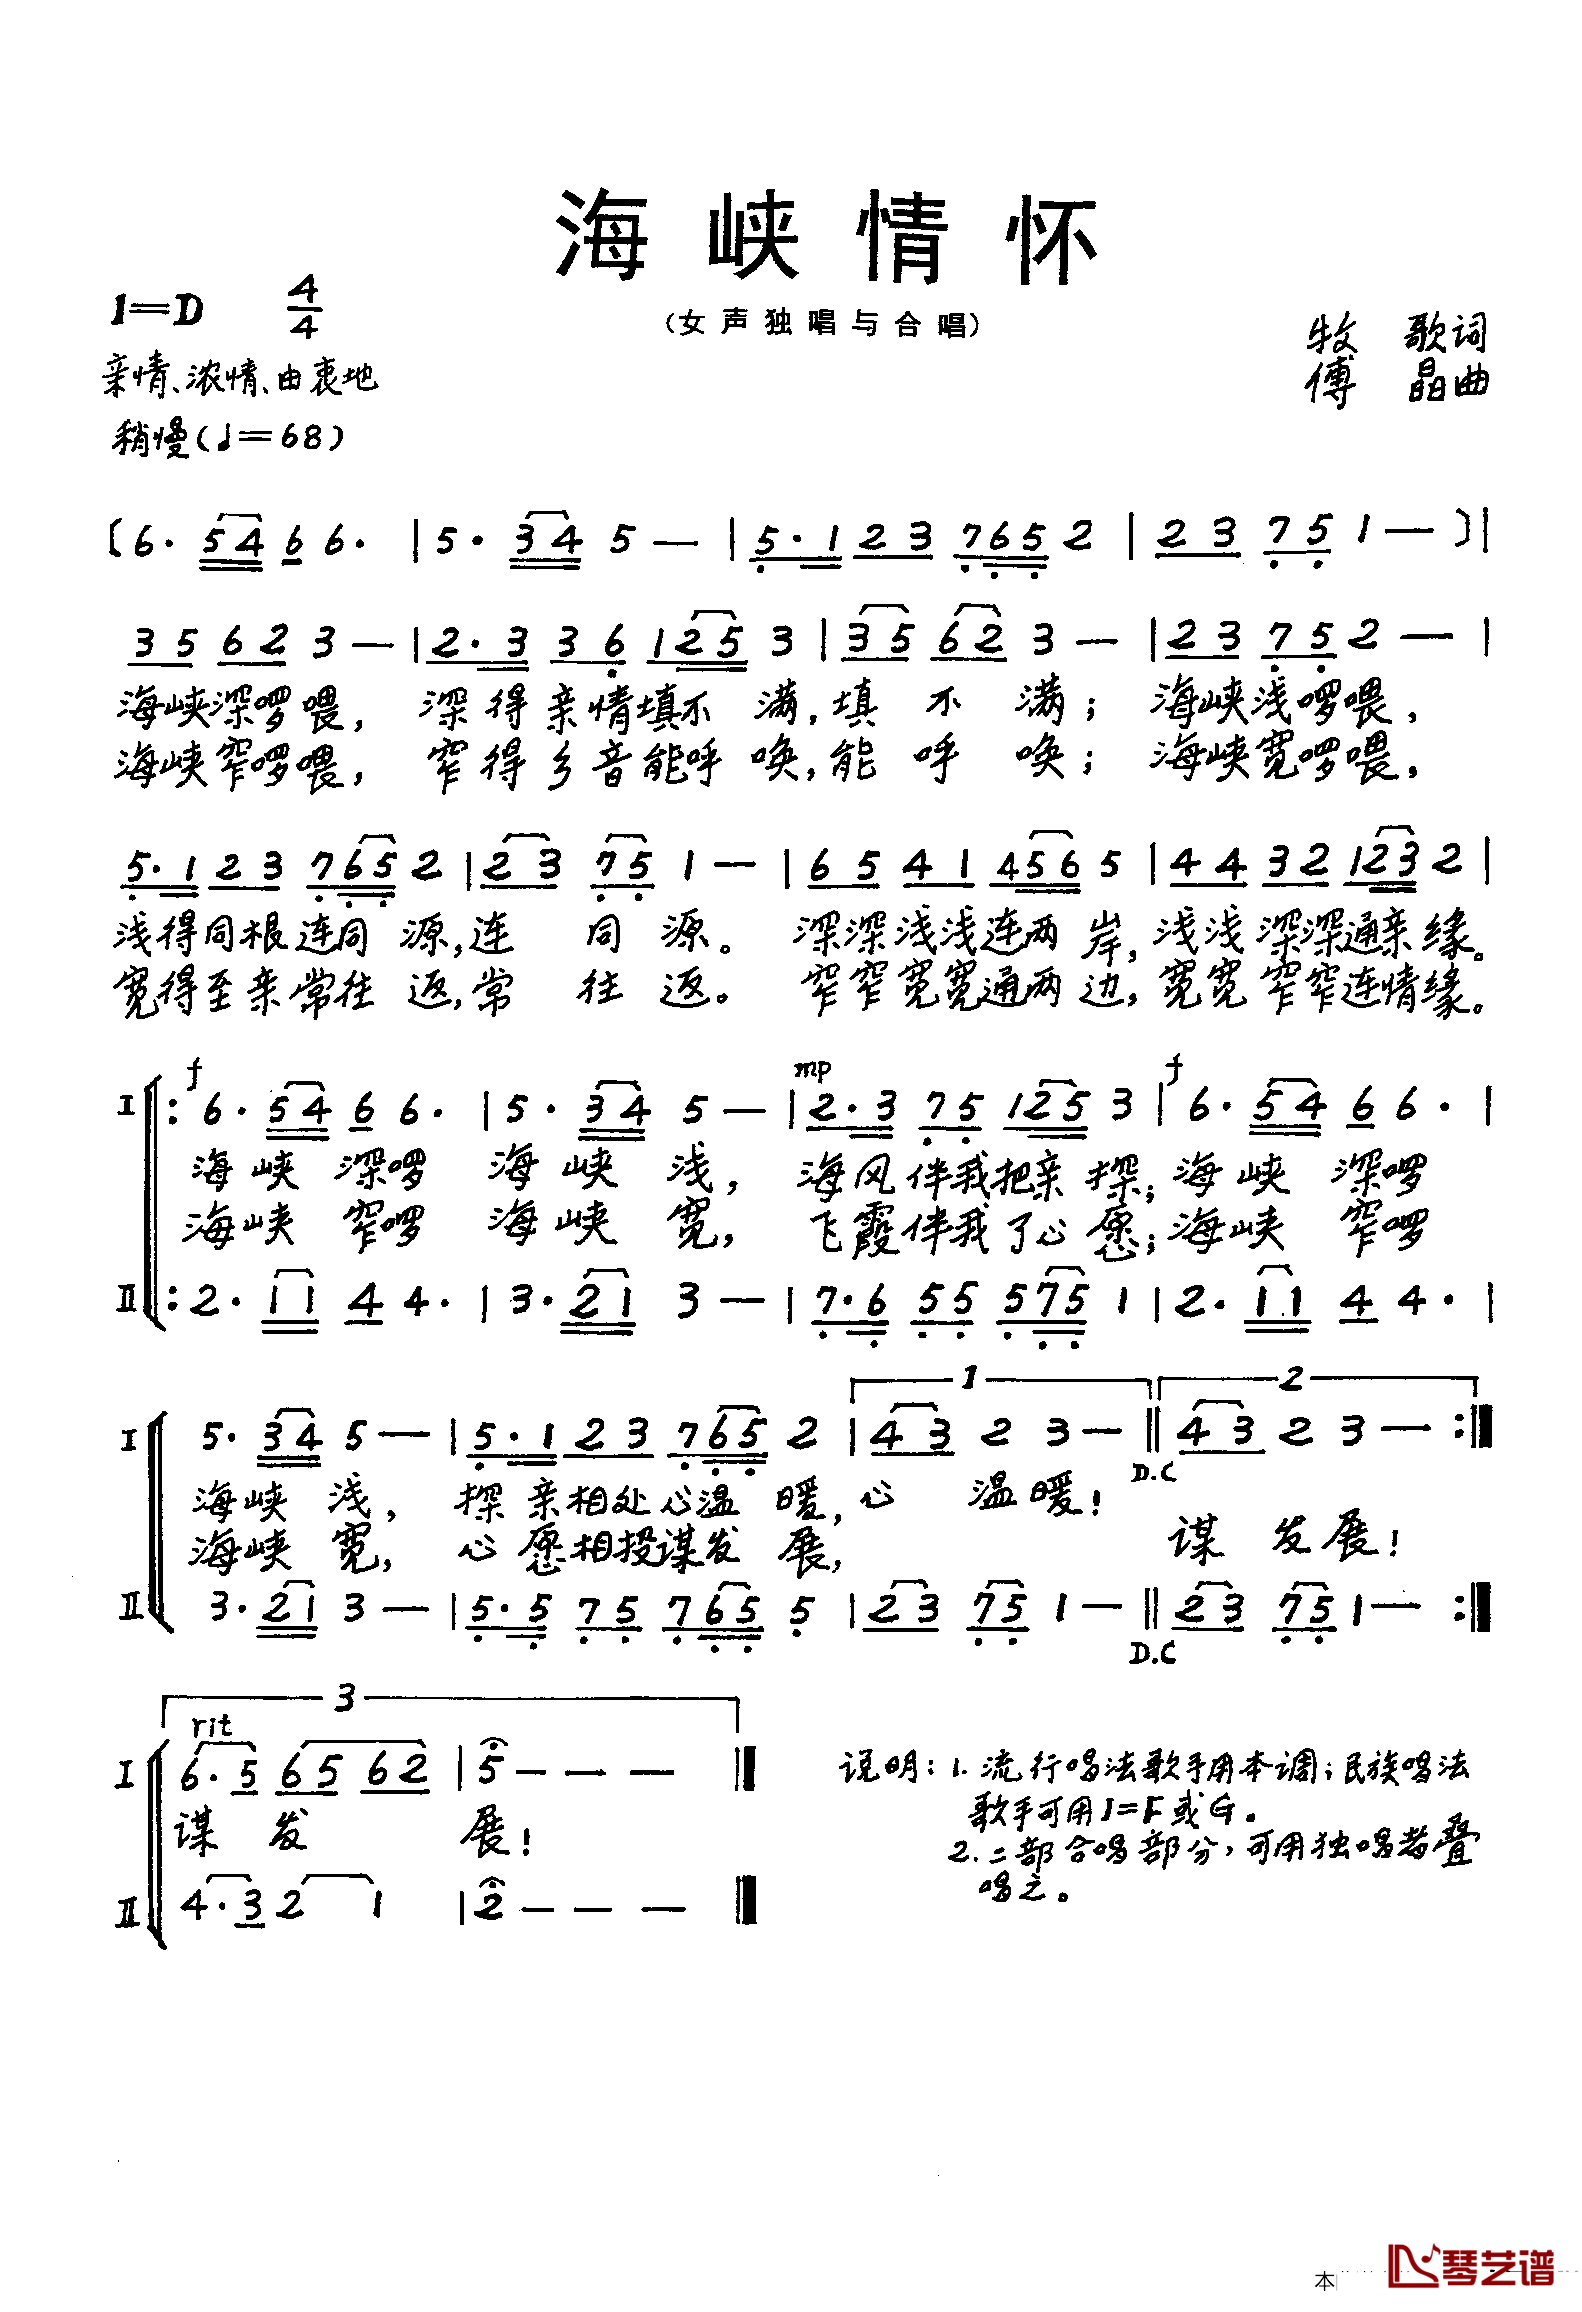 海峡情怀
(女声独唱与合唱)
1=D 4/4
牧 歌词
傅 晶曲
亲情、浓情、由衷地
稍慢(♩=68)
〔6· 54 6 6· | 5· 34 5 — | 5· 1 2 3 765 2 | 2 3 7 5 1 — 〕|
3 5 6 2 3 — | 2· 3 3 6 125 3 | 3 5 6 2 3 — | 2 3 7 5 2 — |
海峡深啰喂, 深得亲情填不满,填不满; 海峡浅啰喂,
海峡窄啰喂, 窄得乡音能呼唤,能呼唤; 海峡宽啰喂,
5· 1 2 3 765 2 | 2 3 7 5 1 — | 6 5 4 1 456 5 | 4 4 3 2 123 2 |
浅得同根连同源,连同源。 深深浅浅连两岸,浅浅深深通亲缘。
宽得至亲常往返,常往返。 窄窄宽宽通两边,宽宽窄窄连情缘。
f mp f
I ‖: 6· 54 6 6· | 5· 34 5 — | 2· 3 7 5 125 3 | 6· 54 6 6· |
海峡深啰 海峡浅, 海风伴我把亲探; 海峡深啰
海峡窄啰 海峡宽, 飞霞伴我了心愿; 海峡窄啰
II ‖: 2· 11 4 4· | 3· 21 3 — | 7· 6 5 5 575 1 | 2· 11 4 4· |
1 2
I 5· 34 5 — | 5· 1 2 3 765 2 | 4 3 2 3 — ‖ 4 3 2 3 — :‖
D.C
海峡浅, 探亲相处心温暖,心温暖!
海峡宽, 心愿相投谋发展, 谋发展!
II 3· 21 3 — | 5· 5 7 5 765 5 | 2 3 7 5 1 — ‖ 2 3 7 5 1 — :‖
D.C
3
rit
I 6· 5 6 5 6 2 | 5 — — — ‖
谋发展!
II 4· 3 2 1 | 2 — — — ‖
说明:1.流行唱法歌手用本调;民族唱法
歌手可用1=F或G。
2.二部合唱部分,可用独唱者叠
唱之。
本
琴艺谱